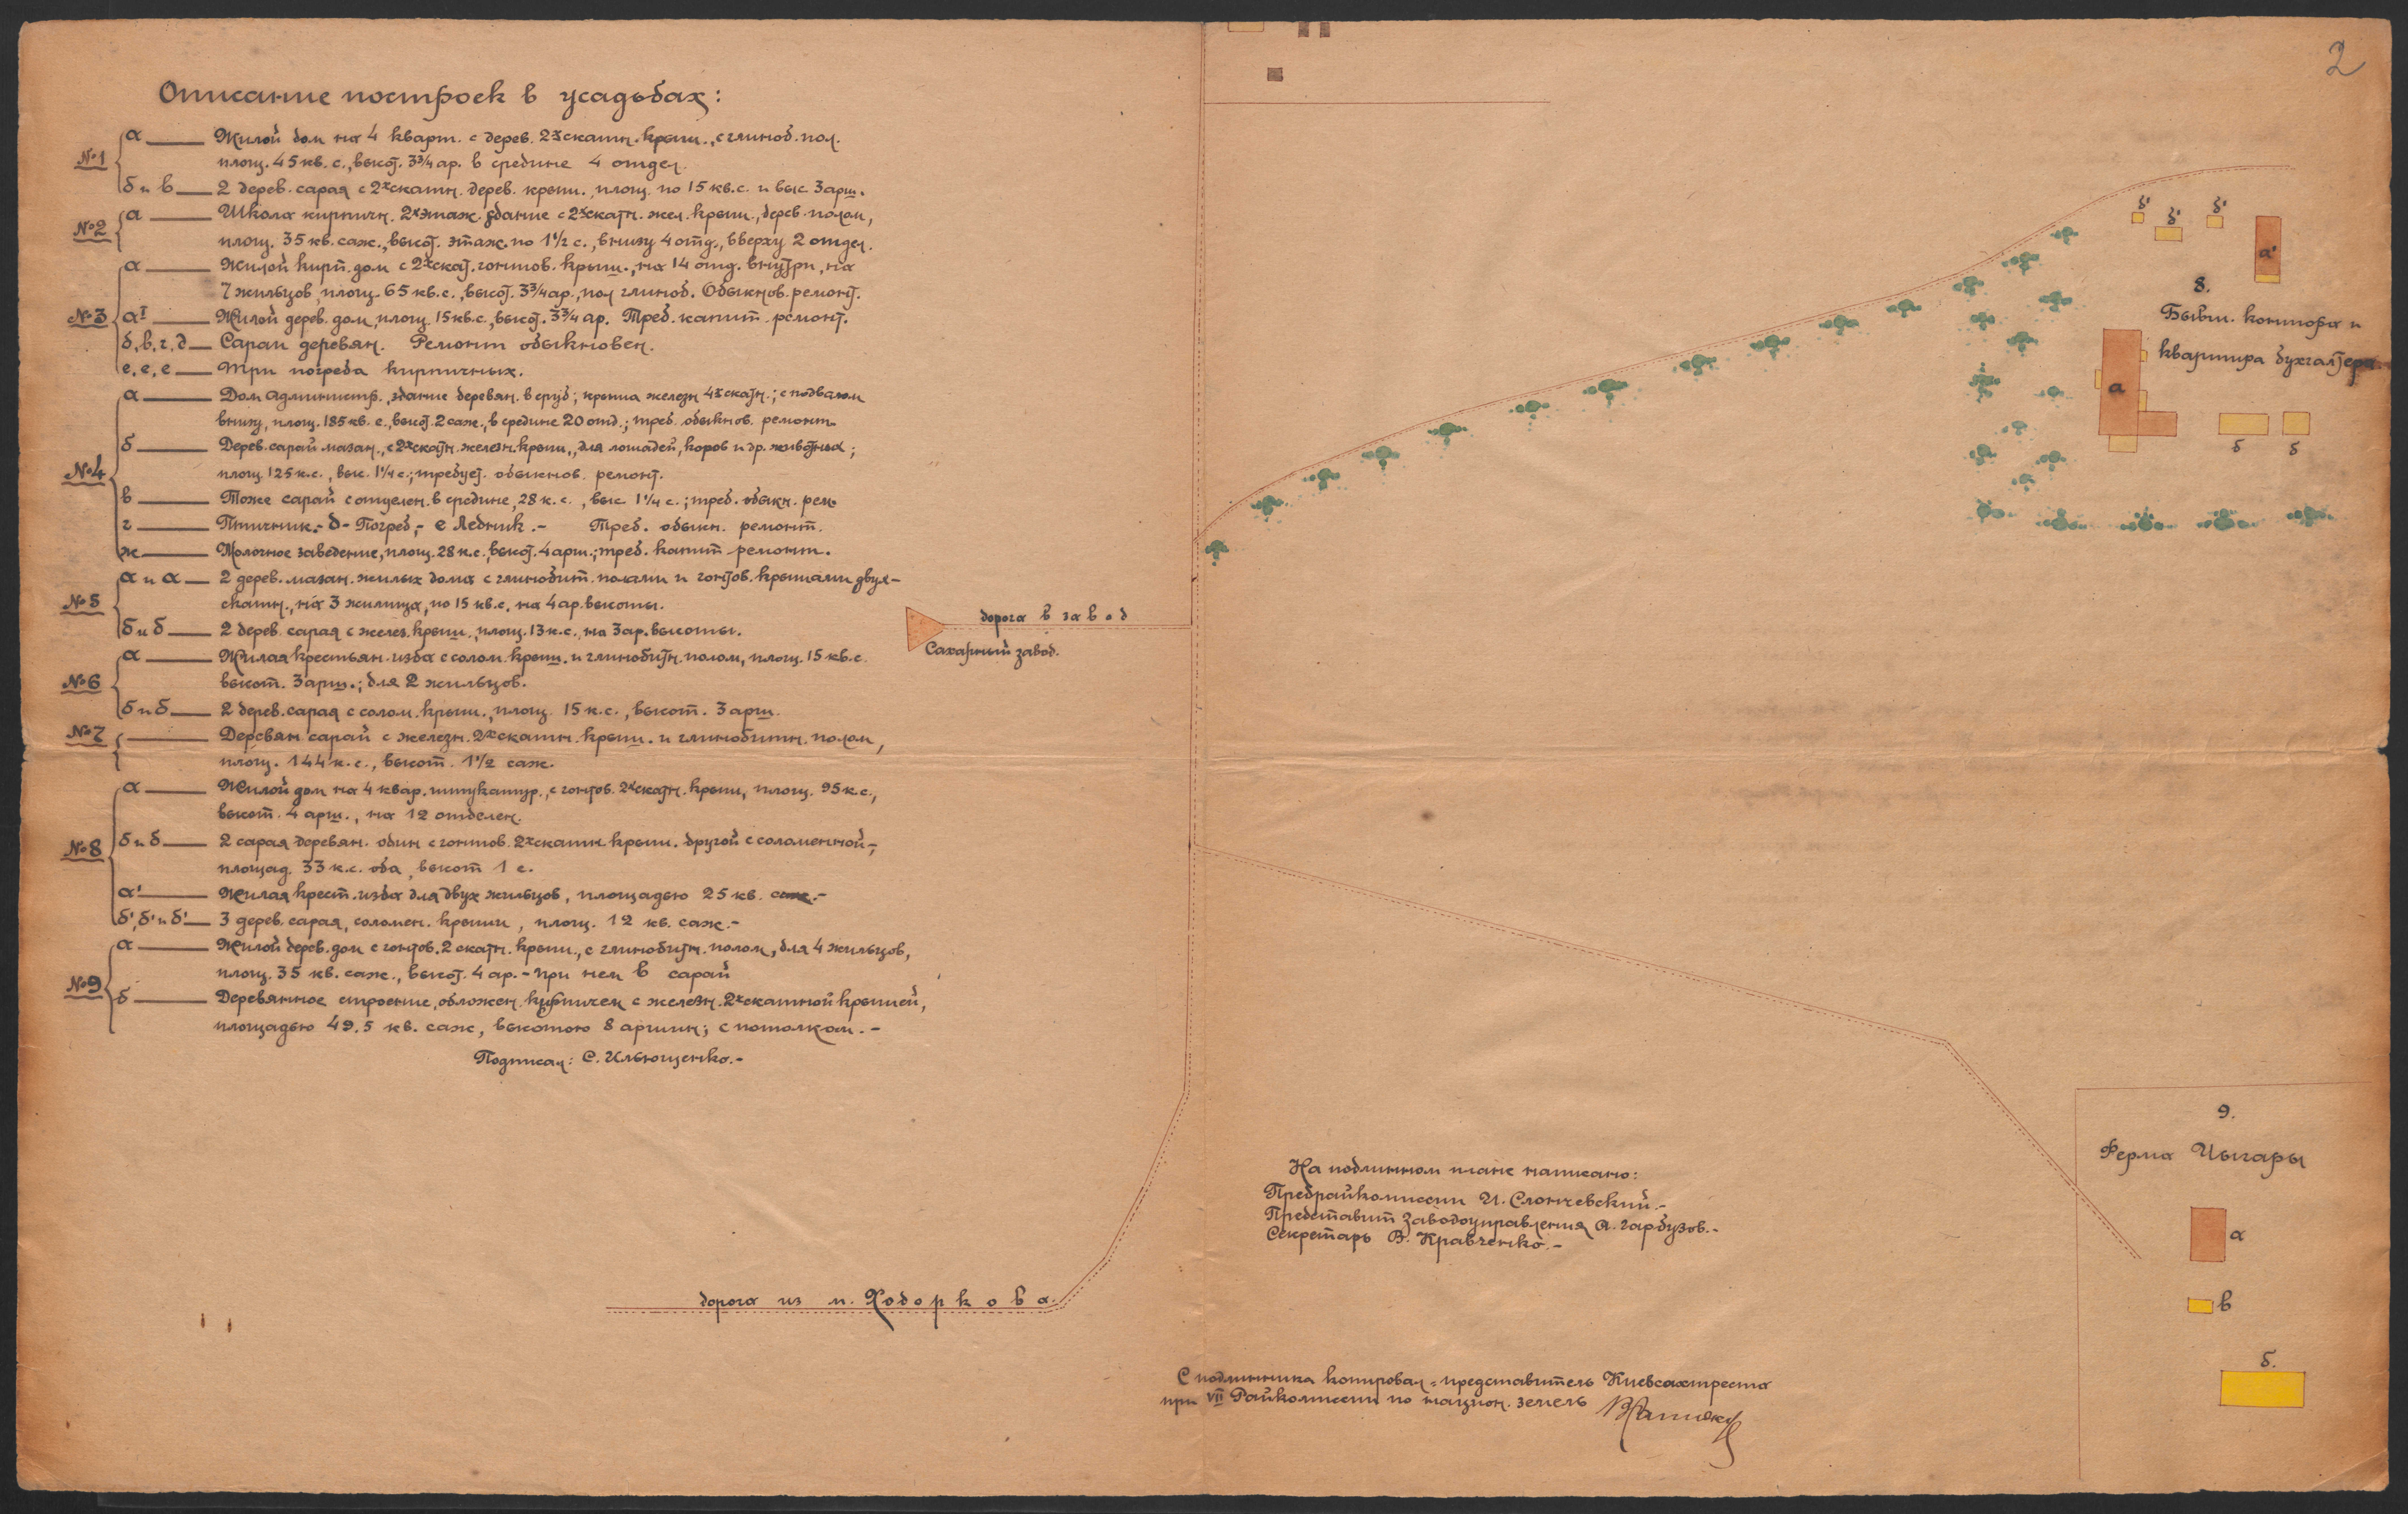 2
Описание построек в усадьбах:
№1 а — Жилой дом на 4 кварт. с дерев. 2хскатн. крыш., с глиноб. пол.
площ. 45 кв. с., высот. 3¾ ар. в средине 4 отдел.
б и в — 2 дерев. сарая с 2хскатн. дерев. крыш., площ. по 15 кв. с. и выс 3 арш.
№2 а — Школа кирпичн. 2хэтаж. здание с 2хскатн. жел. крыш., дерев. полом,
площ. 35 кв. саж., высот. этаж. по 1½ с., внизу 4 отд., вверху 2 отдел.
№3 а — Жилой кирп. дом с 2хскат. гонтов. крыш., на 14 отд. внутри, на
7 жильцов, площ. 65 кв. с., высот. 3¾ ар., пол глиноб. Обыкнов. ремонт.
аI — Жилой дерев. дом, площ. 15 кв. с., высот. 3¾ ар. Треб. капит. ремонт.
б, в, г, д — Сараи деревян. Ремонт обыкновен.
е, е, е — Три погреба кирпичных.
№4 а — Дом администр., здание деревян. в сруб; крыша железн 4хскатн.; с подвалом
внизу, площ. 185 кв. с., высот. 2 саж., в средине 20 отд.; треб. обыкнов. ремонт.
б — Дерев. сарай мазан., с 2хскатн. железн. крыш., для лошадей, коров и др. животных;
площ. 125 к. с., выс. 1¼ с.; требует. обыкнов. ремонт.
в — Тоже сарай с отделен. в средине, 28 к. с., выс. 1¼ с.; треб. обыкн. рем.
г — Птичник.- д - Погреб,- е Ледник.- Треб. обыкн. ремонт.
ж — Молочное заведение, площ. 28 к. с., высот. 4 арш.; треб. капит ремонт.
№5 а и а — 2 дерев. мазан. жилых дома с глинобит. полами и гонтов. крышами двух-
скатн., на 3 жилища, по 15 кв. с. на 4 ар. высоты.
б и б — 2 дерев. сарая с желез. крыш., площ. 13 к. с., на 3 ар. высоты.
№6 а — Жилая крестьян. изба с солом. крыш. и глинобитн. полом, площ. 15 кв. с.
высот. 3 арш.; для 2 жильцов.
б и б — 2 дерев. сарая с солом. крыш., площ. 15 к. с., высот. 3 арш.
№7 — Деревян сарай с железн. 2хскатн. крыш. и глинобитн. полом,
площ. 144 к. с., высот. 1½ саж.
№8 а — Жилой дом на 4 квар. штукатур., с гонтов. 2хскатн. крыш, площ. 95 к. с.,
высот. 4 арш., на 12 отделен.
б и б — 2 сарая деревян. один с гонтов. 2хскатн. крыш. другой с соломенной-,
площад. 33 к. с. оба, высот 1 с.
а' — Жилая крест. изба для двух жильцов, площадью 25 кв. саж.-
б', б' и б' — 3 дерев. сарая, соломен. крыши, площ. 12 кв. саж.-
№9 а — Жилой дерев. дом с гонтов. 2 скатн. крыш., с глинобитн. полом, для 4 жильцов,
площ. 35 кв. саж., высот. 4 ар. - при нем в сарай
б — Деревянное строение, обложен. кирпичем с железн. 2хскатной крышей,
площадью 49.5 кв. саж, высотою 8 аршин; с потолком.-
Подписал: С. Ильющенко.-
дорога в завод
Сахарный завод.
дорога из м. Ходоркова.
б' б' б'
а'
8.
Бывш. контора и
квартира бухгалтера
а
б б
9.
Ферма Цыгары
а
в
б.
На подлинном плане написано:
Предрайкомиссии И. Слончевский.-
Представит Заводоуправления А. Гарбузов.-
Секретарь В. Кравченко.-
С подлинника копировал - представитель Киевсахтреста
при VII Райкомиссии по национ. земель